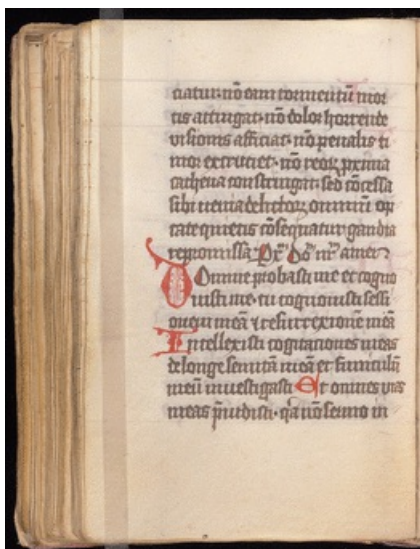 ciatur· nō eam tormentū mor
tis attingat· nō dolor horrende
visionis afficiat· nō penalis ti
mor excruciet· nō reoꝝ pxima
cathena constringat· sed cōcessa
sibi uenia delictoꝝ omnium op
tate quietis cōsequatur gaudia
repromissa· P̄ Dm̄ nr̄ amen
Domine probasti me et cogno
uisti me· tu cognouisti sessi
onem meā ⁊ resurrexionē meā
Intellexisti cogitaciones meas
de longe semitā meā et funiculū
meū inuestigasti Et omnes vias
meas p̄uidisti· qa nō sermo in